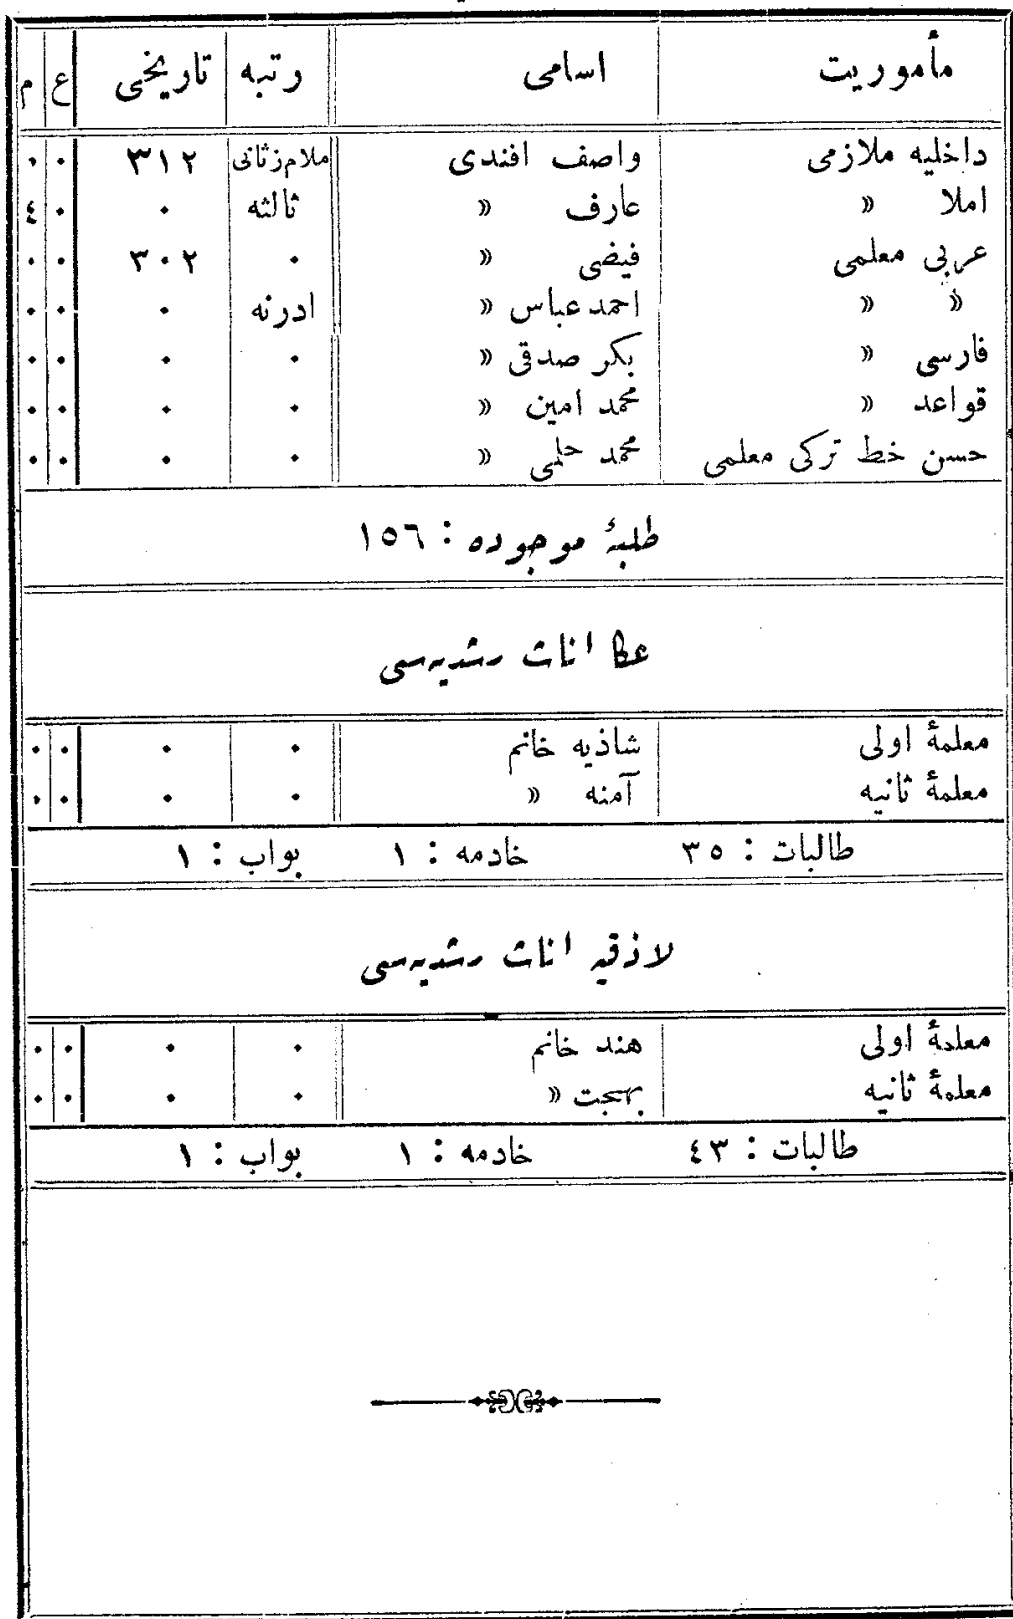 مأموریت اسامی رتبه تاریخی ع م
داخلیه ملازمی واصف افندی ملازم ثانی ٣١٢ ٠ ٠
املا » عارف » ثالثه ٠ ٠ ٤
عربی معلمی فیضی » ٠ ٣٠٢ ٠ ٠
» » احمد عباس » ادرنه ٠ ٠ ٠
فارسی » بکر صدقی » ٠ ٠ ٠ ٠
قواعد » محمد امین » ٠ ٠ ٠ ٠
حسن خط ترکی معلمی محمد حلمی » ٠ ٠ ٠ ٠
طلبۀ موجوده : ١٥٦
عکا اناث رشدیه‌سی
معلمۀ اولی شاذیه خانم ٠ ٠ ٠ ٠
معلمۀ ثانیه آمنه » ٠ ٠ ٠ ٠
طالبات : ٣٥ خادمه : ١ بواب : ١
لاذقیه اناث رشدیه‌سی
معلمۀ اولی هند خانم ٠ ٠ ٠ ٠
معلمۀ ثانیه بهجت » ٠ ٠ ٠ ٠
طالبات : ٤٣ خادمه : ١ بواب : ١